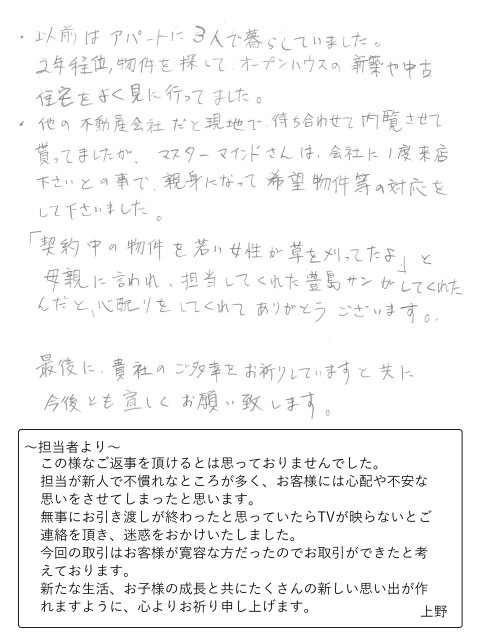 ・以前はアパートに3人で暮らしていました。
2年程位、物件を探して、オープンハウスの新築や中古
住宅をよく見に行ってました。
・他の不動産会社だと現地で、待ち合わせて内覧させて
貰ってましたが、マスターマインドさんは、会社に1度来店
下さいとの事で、親身になって希望物件等の対応を
して下さいました。
「契約中の物件を若い女性が草を刈ってたよ」と
母親に言われ、担当してくれた豊島サンがしてくれた
んだと、心配りをしてくれてありがとうございます。
最後に、貴社のご多幸をお祈りしていますと共に
今後とも宜しくお願い致します。
～担当者より～
この様なご返事を頂けるとは思っておりませんでした。
担当が新人で不慣れなところが多く、お客様には心配や不安な
思いをさせてしまったと思います。
無事にお引き渡しが終わったと思っていたらTVが映らないとご
連絡を頂き、迷惑をおかけいたしました。
今回の取引はお客様が寛容な方だったのでお取引ができたと考
えております。
新たな生活、お子様の成長と共にたくさんの新しい思い出が作
れますように、心よりお祈り申し上げます。
上野